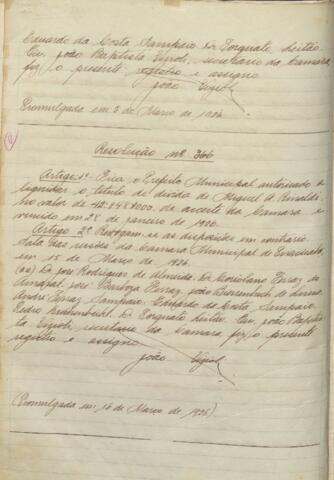 Eduardo da Costa Sampaio D. Torquato Leitão
Eu, João Baptista Vizioli, secretario da Camara,
fiz o presente registro e assigno
João Vizioli
Promulgada em 2 de Março de 1926
Resolução nº 366
Artigo 1º Fica o Prefeito Municipal autorizado a
liquidar o titulo de divida de Miguel A.
no valor de de acceite da Camara e
vencido em 28 de janeiro de 1926.
Artigo 2º Revogam-se as disposições em contrario
Sala das sessões da Camara Municipal de
em 15 de Março de 1926.
(aa) D. José Rodrigues de Almeida. D. Coriolano Ferraz do
Amaral. José Barboza Ferraz, João
André Ferraz Sampaio, Eduardo da Costa Sampaio
Pedro D. Torquato Leitão. Eu, João Baptis-
ta Vizioli, secretario da Camara fiz o presente
registro e assigno
João Vizioli
(Promulgada em 16 de Março de 1926)